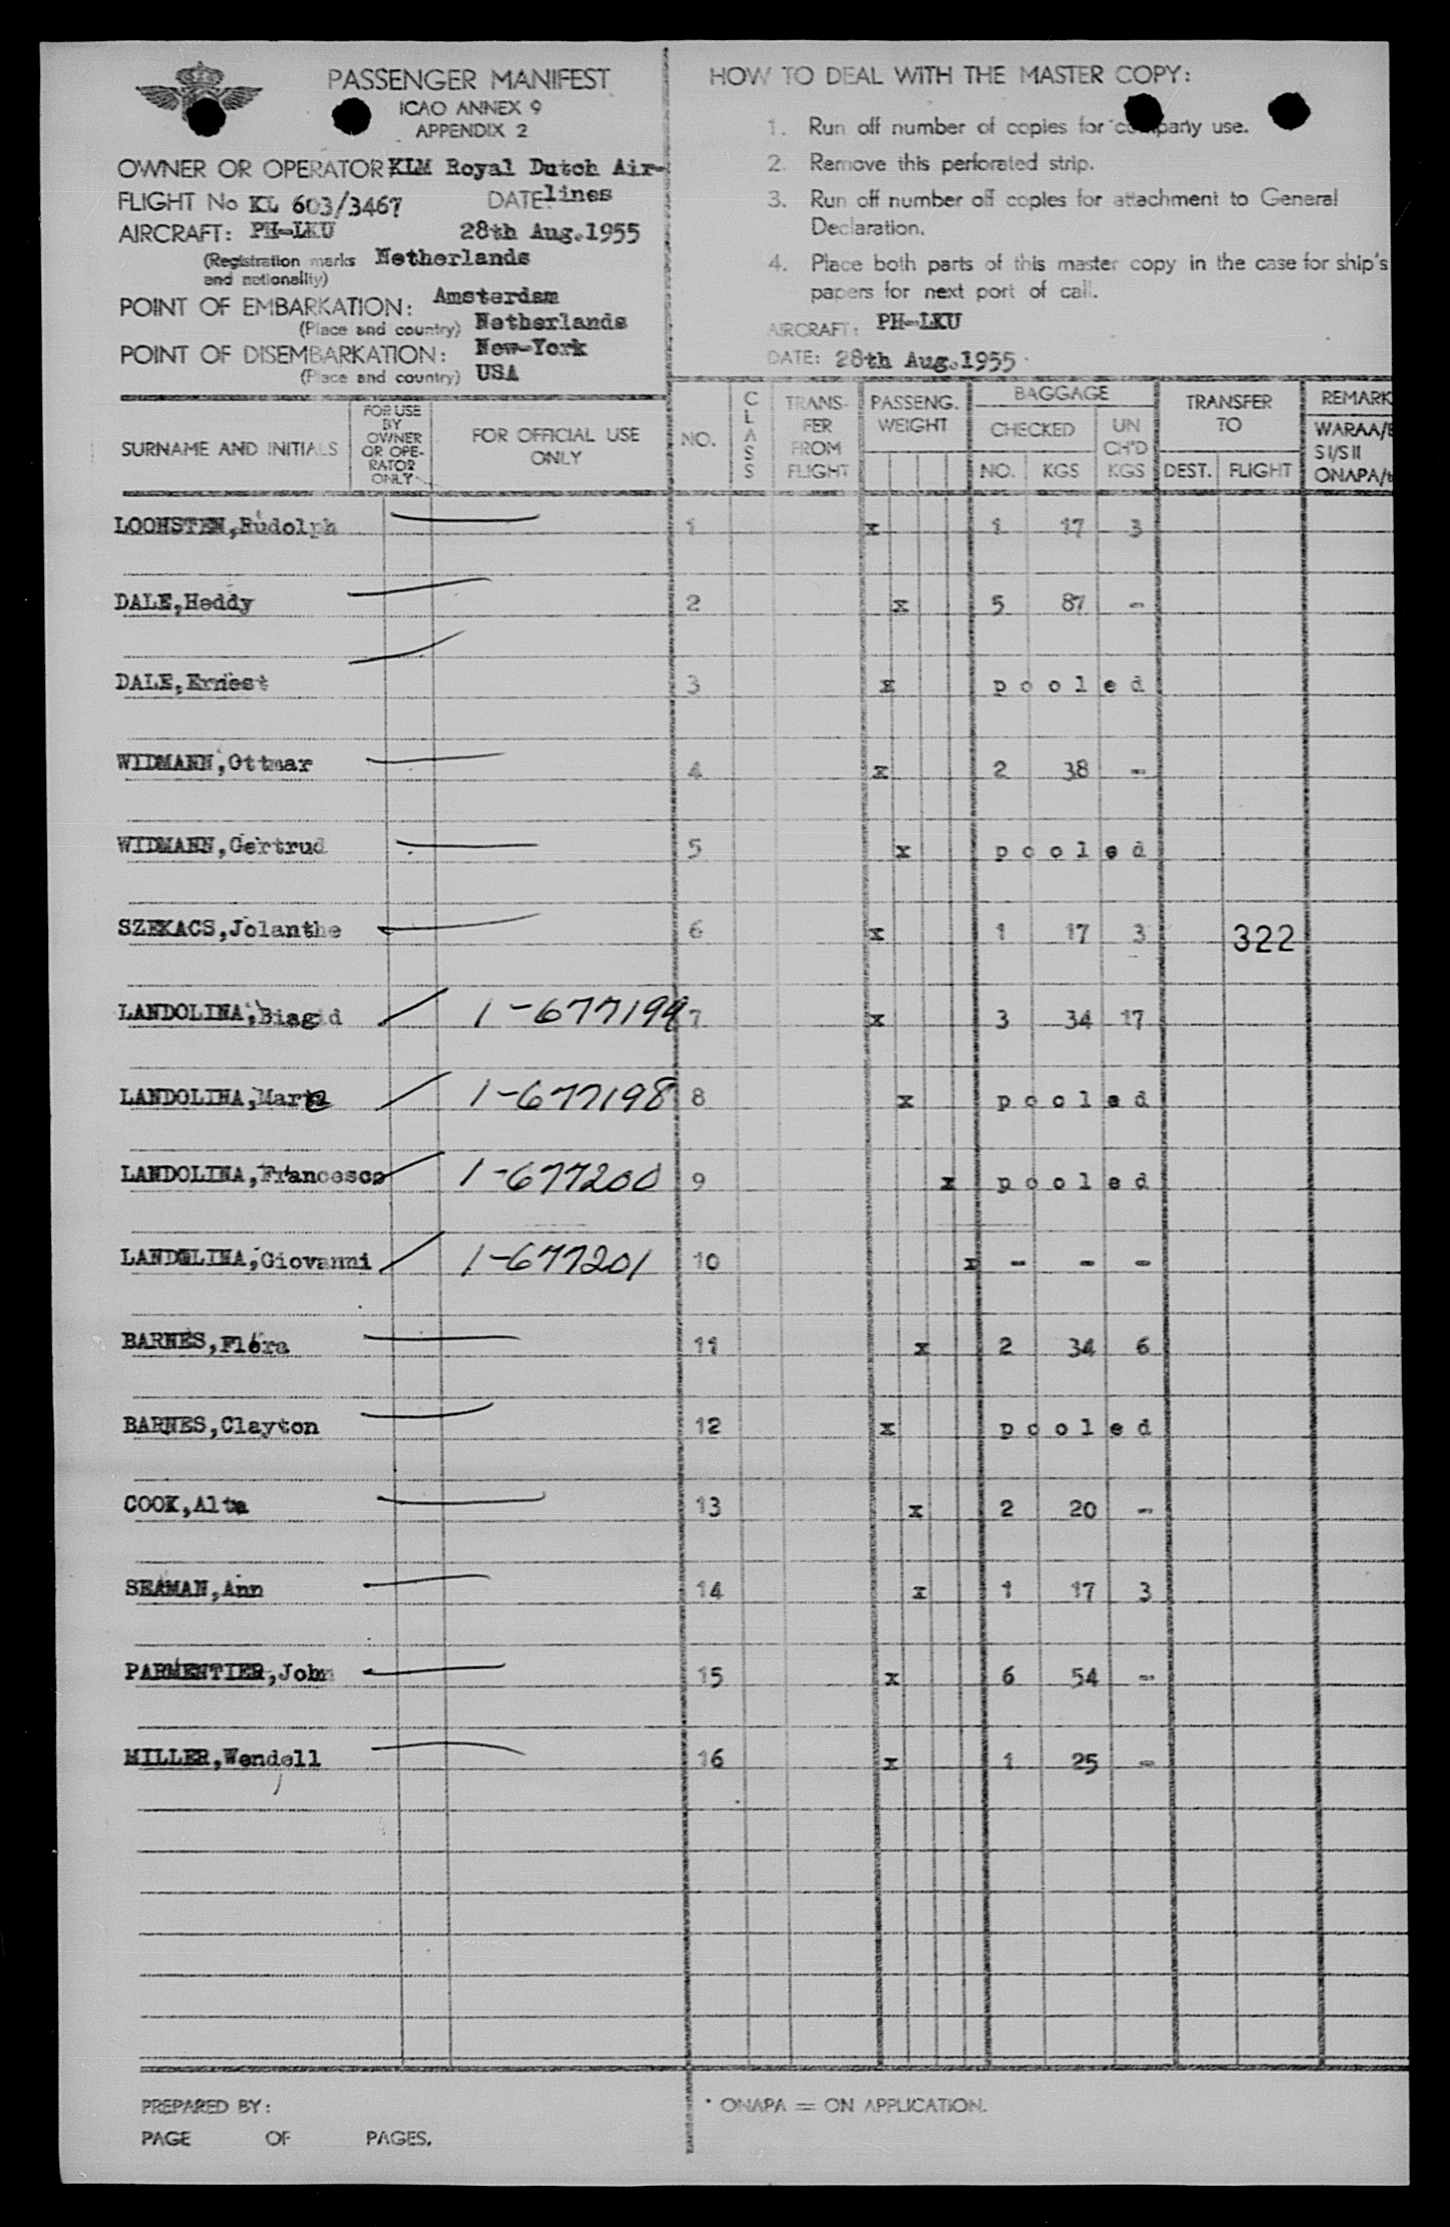 PASSENGER MANIFEST
ICAO ANNEX 9
APPENDIX 2
OWNER OR OPERATOR KLM Royal Dutch Air-
FLIGHT No KL 603/3467 DATE: lines
AIRCRAFT: PH-LKU 28th Aug.1955
(Registration marks Netherlands
and nationality)
POINT OF EMBARKATION: Amsterdam
(Place and country) Netherlands
POINT OF DISEMBARKATION: New-York
(Place and country) USA
HOW TO DEAL WITH THE MASTER COPY:
1. Run off number of copies for company use.
2. Remove this perforated strip.
3. Run off number off copies for attachment to General
Declaration.
4. Place both parts of this master copy in the case for ship's
papers for next port of call.
AIRCRAFT: PH-LKU
DATE: 28th Aug.1955
SURNAME AND INITIALS
FOR USE
BY
OWNER
OR OPE-
RATOR
ONLY
FOR OFFICIAL USE
ONLY
NO.
CLASS
TRANS-
FER
FROM
FLIGHT
PASSENG.
WEIGHT
BAGGAGE
CHECKED
NO. KGS
UN
CH'D
KGS
TRANSFER
TO
DEST. FLIGHT
REMARK
WARAA/
SI/SII
ONAPA/
LOOHSTEN,Rudolph 1 x 1 17 3
DALE,Heddy 2 x 5 87 -
DALE,Ernest 3 x pooled
WIDMANN,Ottmar 4 x 2 38 -
WIDMANN,Gertrud 5 x pooled
SZEKACS,Jolanthe 6 x 1 17 3 322
LANDOLINA,Biagid 1-677199 7 x 3 34 17
LANDOLINA, 1-677198 8 x pooled
LANDOLINA,Francesco 1-677200 9 x pooled
LANDOLINA,Giovanni 1-677201 10 x - - -
BARNES,Flora 11 x 2 34 6
BARNES,Clayton 12 x pooled
COOK,Alta 13 x 2 20 -
SEAMAN,Ann 14 x 1 17 3
PARMENTIER,John 15 x 6 54 -
MILLER,Wendell 16 x 1 25 -
PREPARED BY:
PAGE OF PAGES.
* ONAPA = ON APPLICATION.